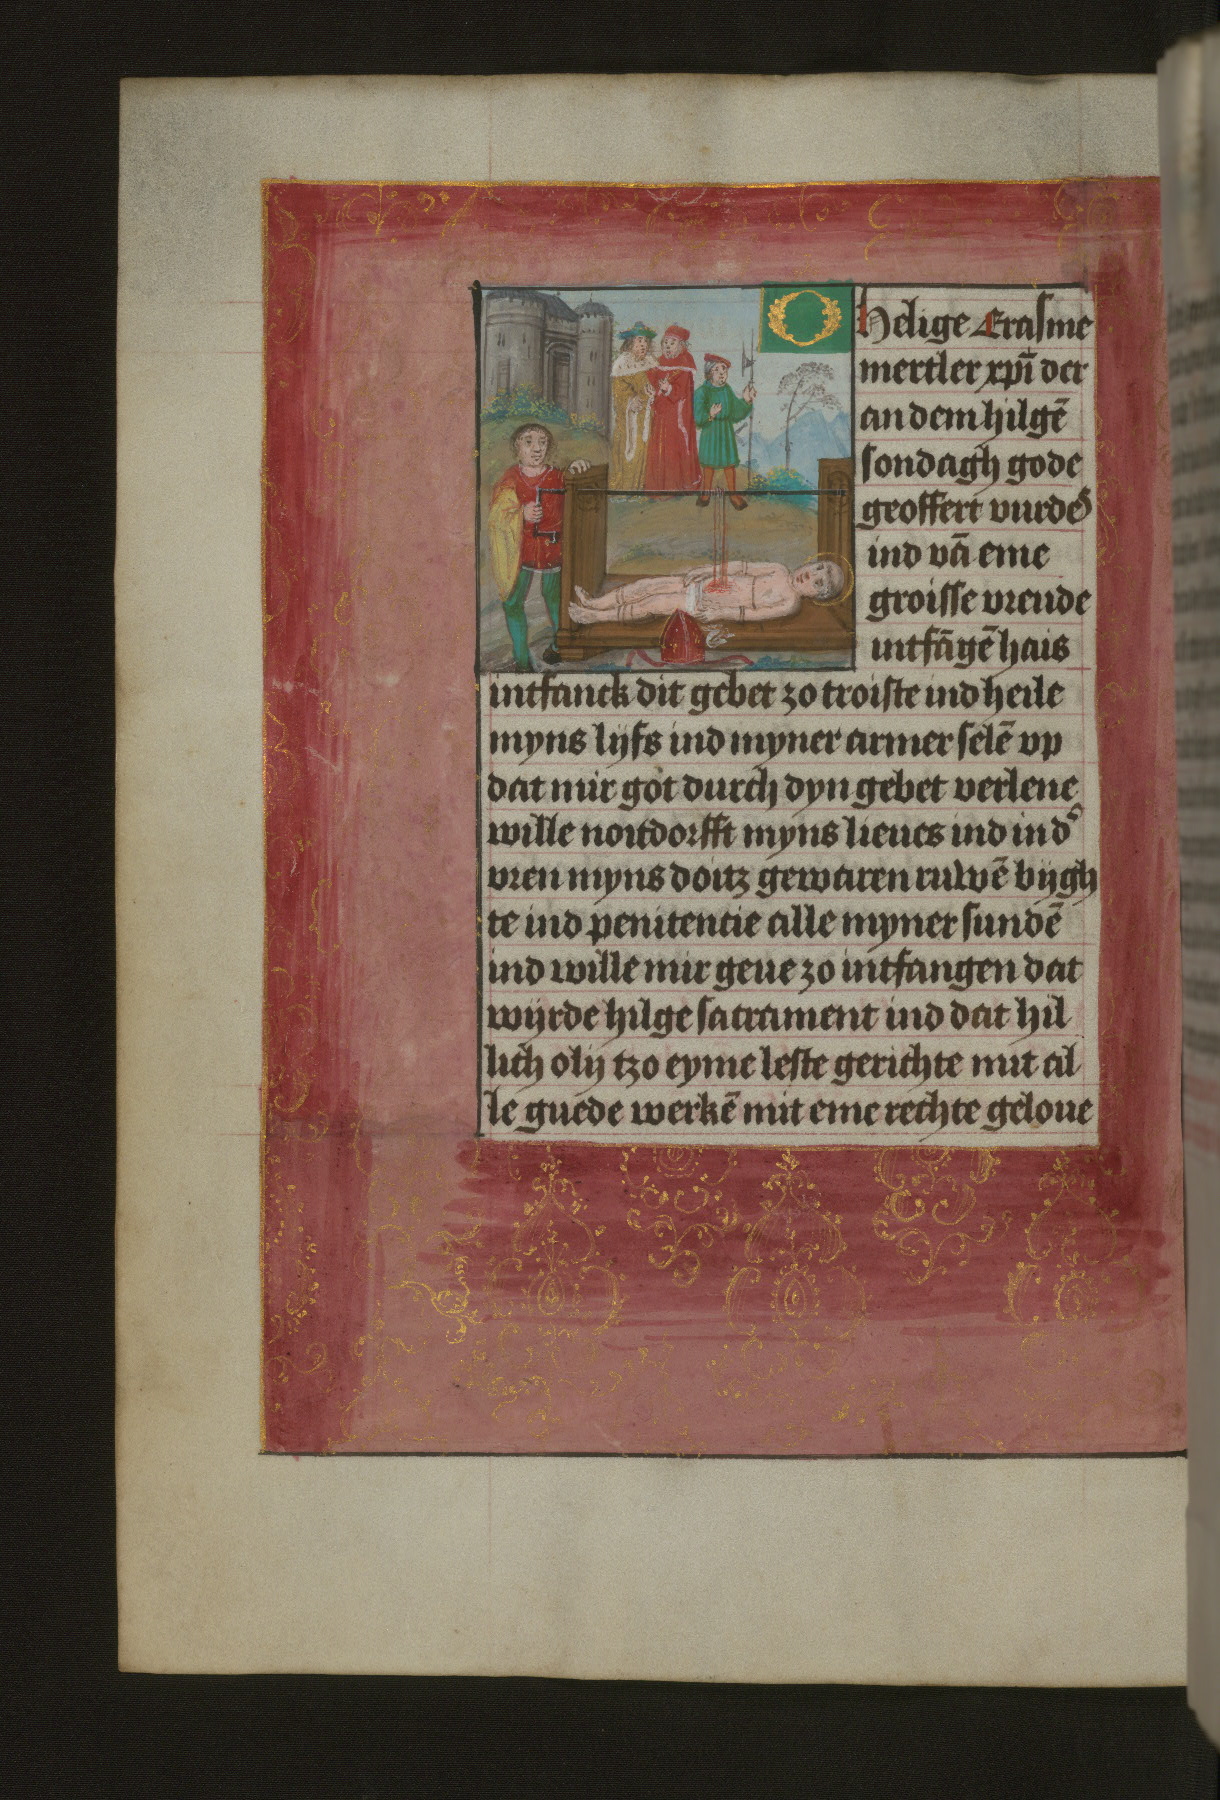 O Helige Erasme
mertler xp̄i der
an dem hilgē
sondagh gode
geoffert vurdeˀ
ind vā eme
groisse vreude
intfāgē hais
intfanck dit gebet zo troiste ind heile
myns lijfs ind myner armer selē vp
dat mir got durch dyn gebet verlene
wille noitdorfft myns lieues ind in dˀ
vren myns doitz gewaren ruwē bijgh
te ind penitencie alle myner sundē
ind wille mir geue zo intfangen dat
wijrde hilge sacrament ind dat hil
lich olij tzo eyme leste gerichte mit al
le guede werkē mit eme rechte geloue